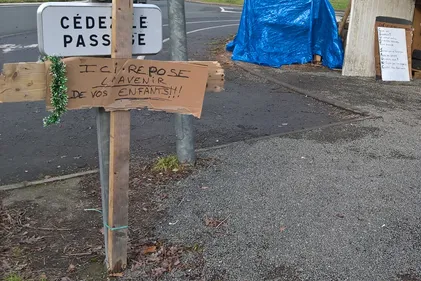 CÉDEZ LE
PASSAGE
ICI REPOSE
L'AVENIR
DE VOS ENFANTS!!!